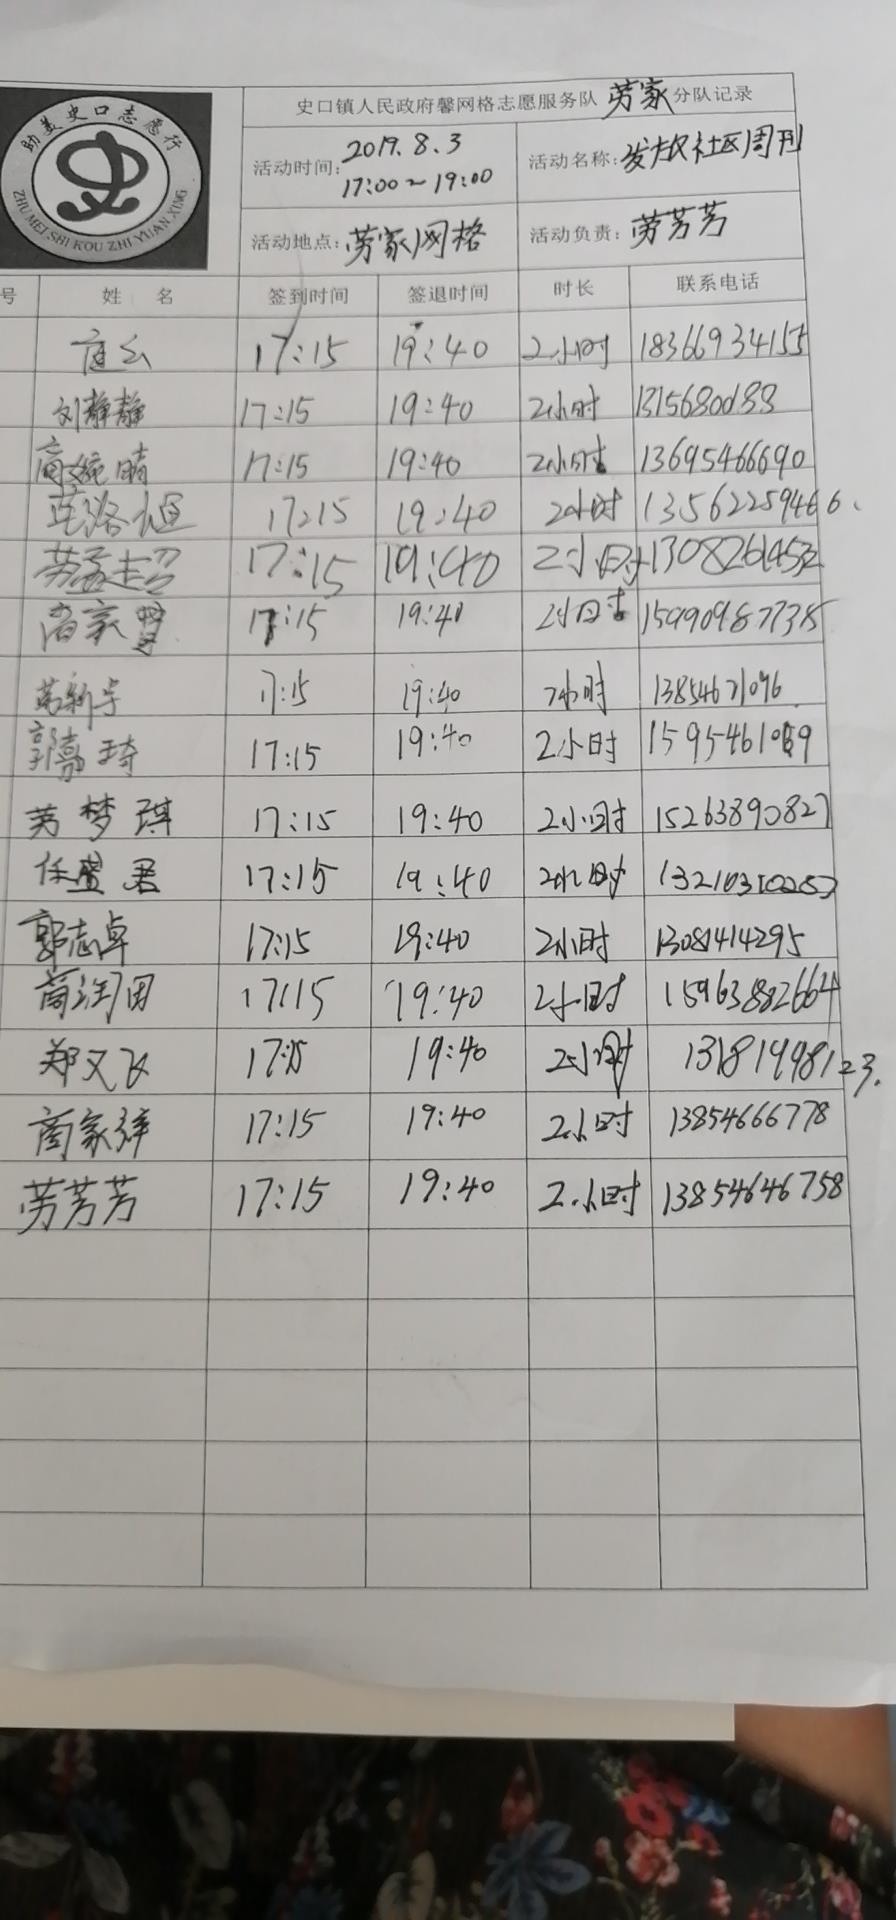 史口镇人民政府馨网格志愿服务队 劳家 分队记录
助美史口志愿行
ZHU MEI SHI KOU ZHI YUAN XING
活动时间: 2019.8.3 17:00~19:00 活动名称: 发放社区周刊
活动地点: 劳家网格 活动负责: 劳芳芳
号 姓 名 签到时间 签退时间 时长 联系电话
17:15 19:40 2小时 18366934155
刘静静 17:15 19:40 2小时 1315680088
商婉晴 17:15 19:40 2小时 13695466690
17:15 19:40 2小时 13562259466
劳孟超 17:15 19:40 2小时
17:15 19:40 2小时
17:15 19:40 2小时 13854671096
郭嘉琦 17:15 19:40 2小时
劳梦琪 17:15 19:40 2小时 15263890827
任盛君 17:15 19:40 2小时
郭志卓 17:15 19:40 2小时 13081414295
商润田 17:15 19:40 2小时 15963882664
郑文飞 17:15 19:40 2小时
商家祥 17:15 19:40 2小时 13854666778
劳芳芳 17:15 19:40 2小时 13854646758